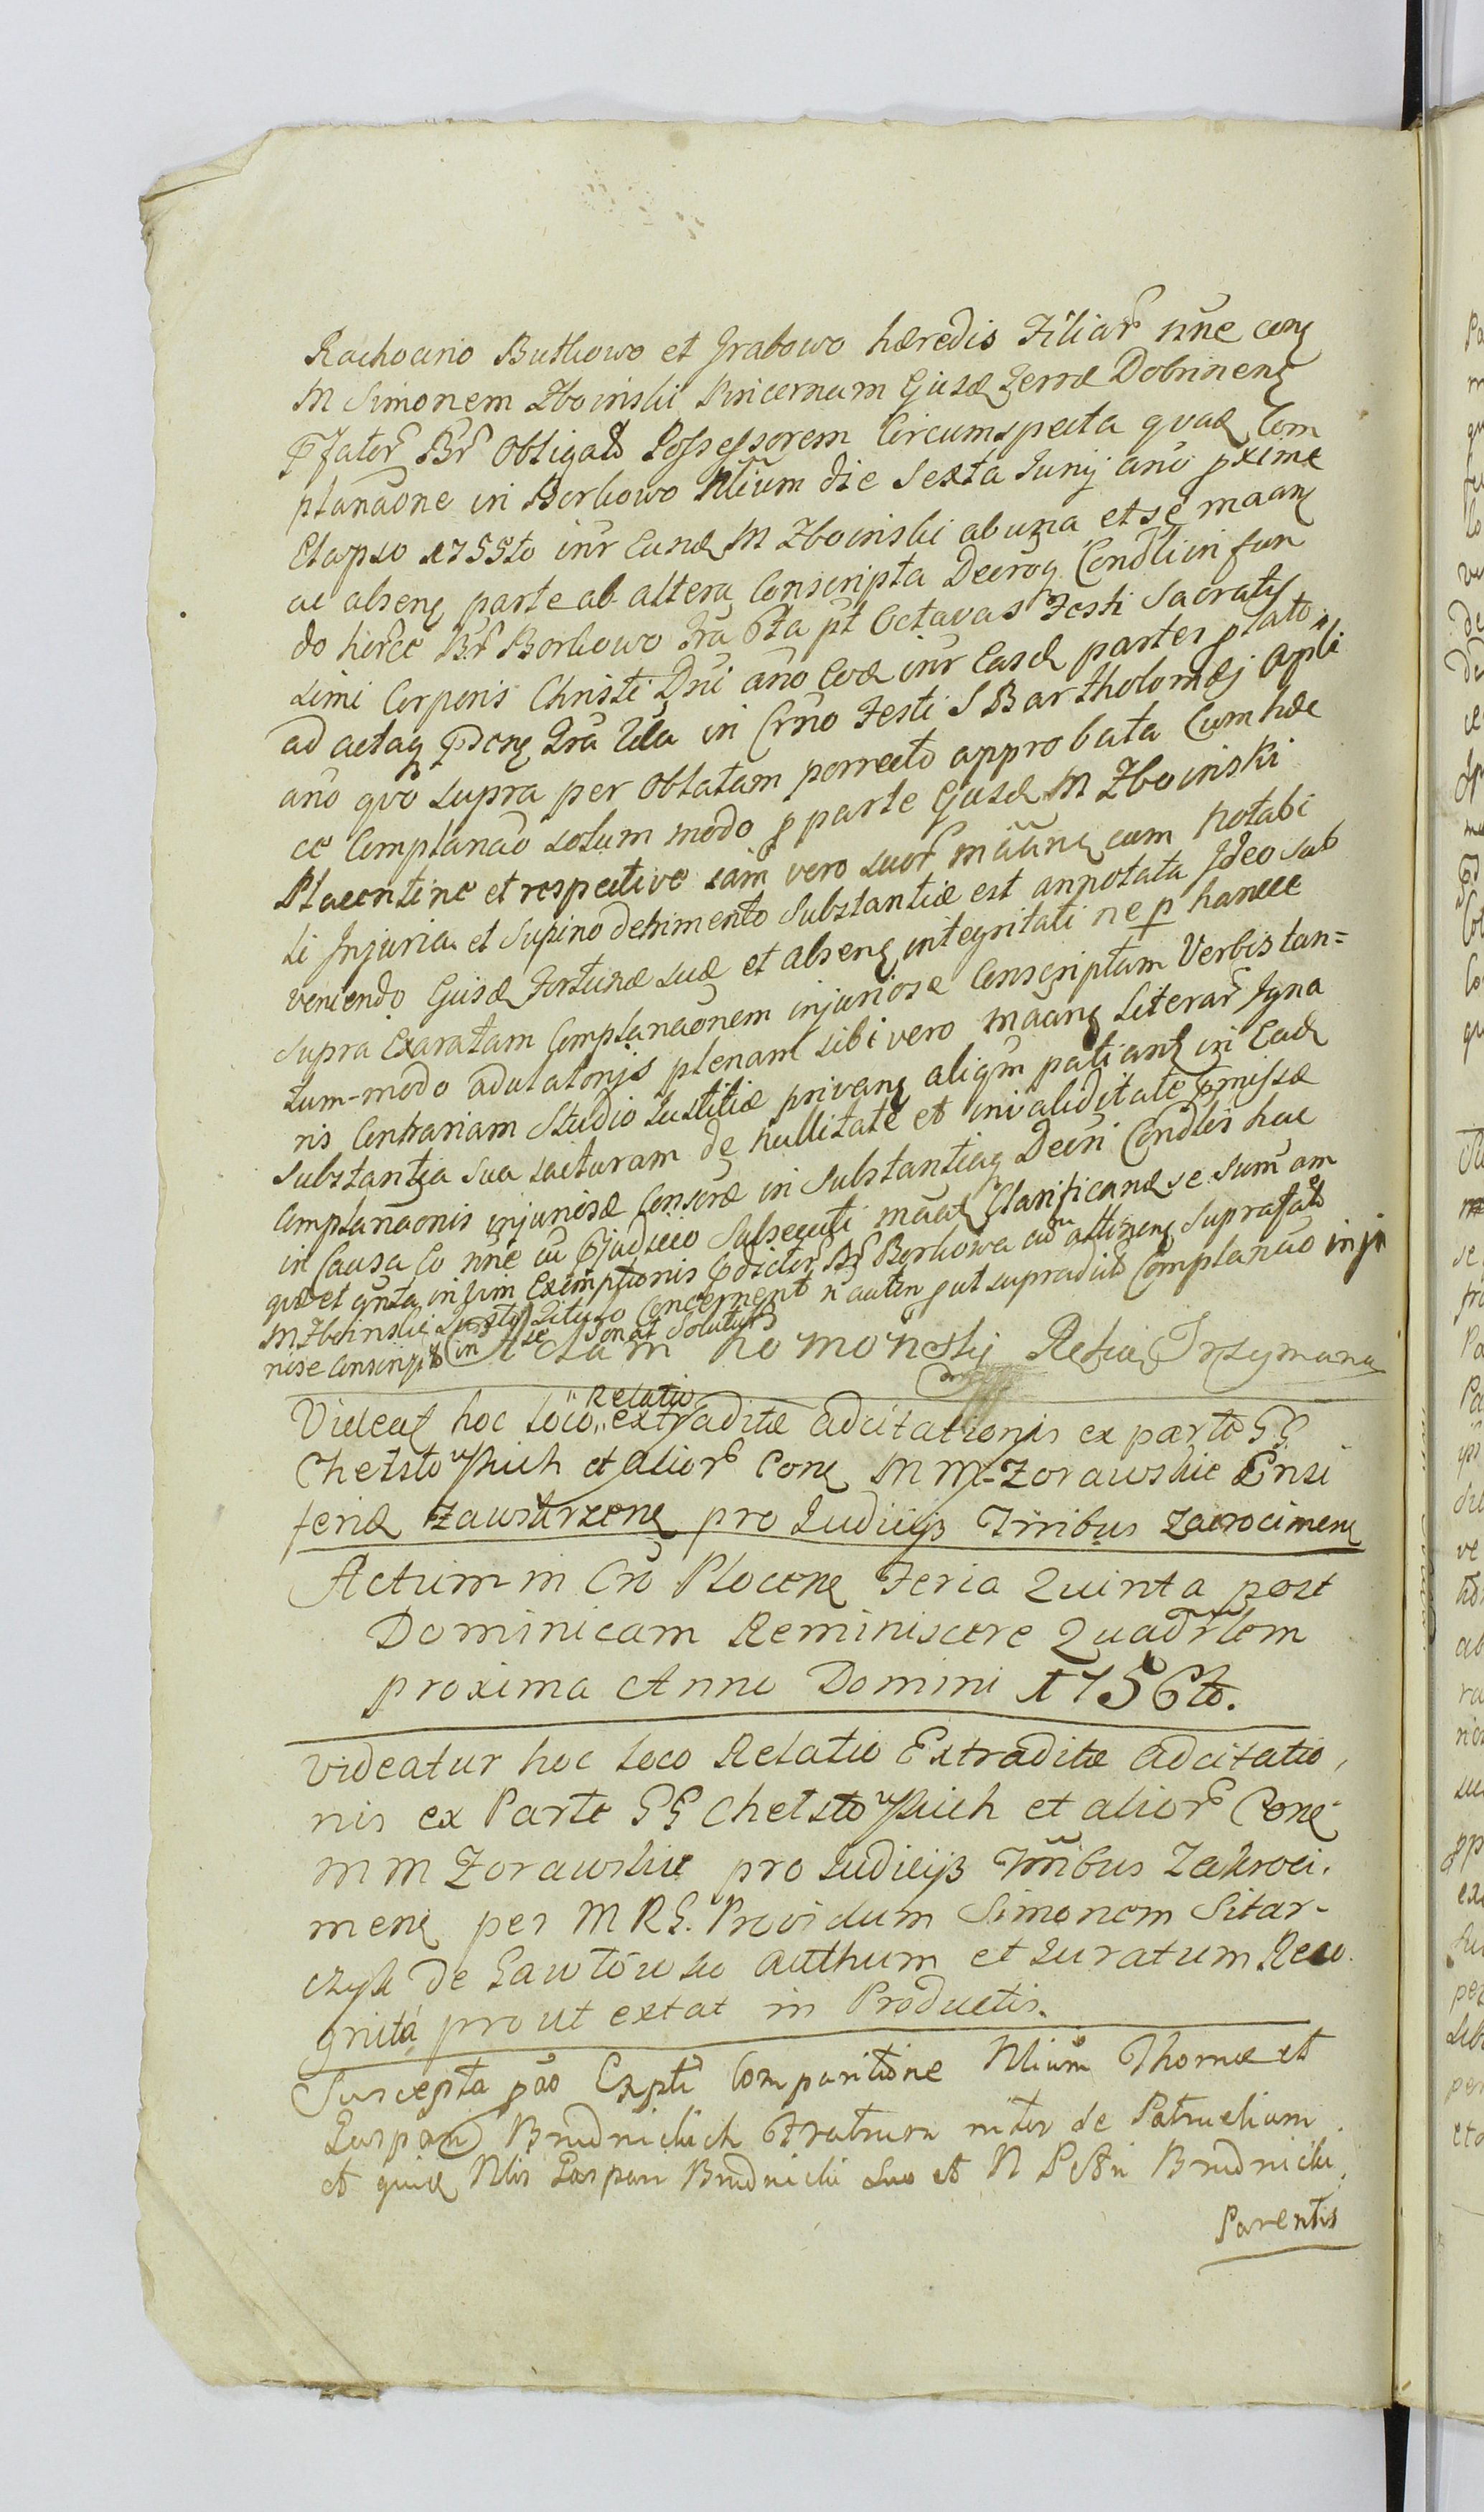 Rachocino Butkowo et Grabowo hæredis Filiar nñe conq
M Simonem Zboinski Pincernam Ejusd Terræ Dobrinenq
Pfator Br Obligato Possessorem Circumspecta quad Com
planaone in Borkowo Nlium die Sexta Junij ano pxime
Elapso 1755to inr Eund M Zboinski ab una et se maanq
ac absenq parte ab altera Conscripta Decroq Condli in fun
do hicce Br Borkowo Fra 6ta pt Octavas Festi Sacratis
simi Corporis Christi Dni ano eod inr Easd partes plato
ad actaq Pdenq Fra 2da in Crno Festi S Bartholomæj Apli
ano quo supra per Oblatam porrecto approbata Cum hæc
ce Complanao solum modo p parte Ejusd M Zboinski
Placentine et respective iam vero suor maanq cum notabi
li Injuria et Supino detrimento Substantiæ est annotata Ideo sub
veniendo Ejusd Fortunæ suæ et absenq integritati ne p hancce
supra Exaratam Complanaonem injuriose Conscriptam Verbis tan=
tum-modo adulatorijs plenam sibi vero maanq Literar Igna
ris Contrariam Studio Justitiæ privanq aliqm patiant in Ead
Substantia sua iacturam de nullitate et invaliditate Pmissæ
Complanaonis injuriosæ Censoræ in Substantiaq Decri Condlis hac
in Causa Co nñe cu Pjudicio Subsecuti maat Clarificand se summam
quæ et gnta in Vim Exemptionis Pdictor Br Borkowa ad M attinenq Suprafato
M Zboinski Justo Titulo Concernent n autem put supradict Complanao inju
riose Conscripto in se sonat Solutur
Adam Romonski Relia Trzymana
Videat hoc loco " Relatio " extraditæ adcitationis ex parte GG
Chelstowskich et alior Conq M M Zorawskie Ensi
feriæ Zawskrzenq pro Judicijs Trribus Zacrocimenq
Actum in Cro Plocenq Feria Quinta post
Dominicam Reminiscere Quadrlem
proxima Anno Domini 1756to.
Videatur hoc loco Relatio Extraditæ adcitatio,
nis ex Parte GG Chelstowskich et alior Conq
M M Zorawskie pro Judicijs Trribus Zakroci.
menq per M R G. Providum Simonem Sitar-
czyk de Gawłowko authum et Juratum Reco.
gnita prout extat in Productis.
Suscepta pao Expti Comparitione Nlium Thomæ et
Gaspari Brudnickich Fratrum inter se Patruelium
et quid Nlis Gaspari Brudnicki suo et N Brudnicki
Parentis